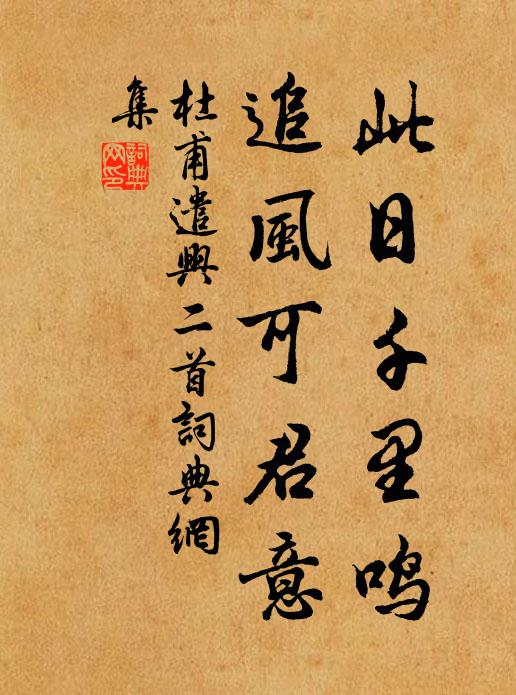 此日千里鸣
追風可君意
杜甫遣興二首詞典網
集
詞典
网印